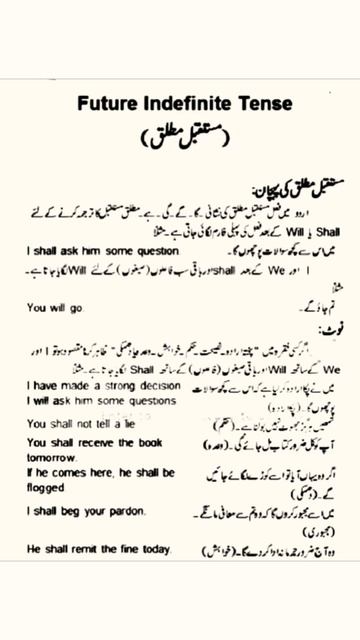 Future Indefinite Tense
(مستقبل مطلق)
مستقبل مطلق کی پہچان:
اردو میں فعل مستقبل مطلق کی نشانی ۔گا۔ گے۔ گی ۔ ہے۔ مطلق مستقبل کا ترجمہ کرنے کے لئے
Shall یا Will کے بعد فعل کی پہلی فارم لگائی جاتی ہے۔ مثلاً
I shall ask him some question. میں اس سے کچھ سوالات پوچھوں گا۔
I اور We کے بعد shall اور باقی سب فاعلوں (صیغوں) کے لئے Will لگایا جاتا ہے۔
مثلاً
You will go. تم جاؤ گے۔
نوٹ:
اگر کسی فقرہ میں "پختہ ارادہ۔ نصیحت۔ حکم۔ خواہش۔ وعدہ یا دھمکی" ظاہر کرنا مقصود ہو تو I اور
We کے ساتھ Will اور باقی صیغوں (فاعلوں) کے ساتھ Shall لگایا جاتا ہے۔ مثلاً
I have made a strong decision میں نے پکا ارادہ کر لیا ہے کہ اس سے کچھ سوالات
I will ask him some questions. پوچھوں گا۔ (پکا ارادہ)
You shall not tell a lie تمھیں ہرگز جھوٹ نہیں بولنا ہے۔ (حکم)
You shall receive the book آپ کو کل ضرور کتاب مل جائے گی۔ (وعدہ)
tomorrow.
If he comes here, he shall be اگر وہ یہاں آیا تو اسے کوڑے لگائے جائیں
flogged گے۔ (دھمکی)
I shall beg your pardon. میں اسے مجبور کروں گا کہ وہ تم سے معافی مانگے۔
(مجبوری)
He shall remit the fine today. وہ آج ضرور جرمانہ ادا کر دے گا۔ (خواہش)